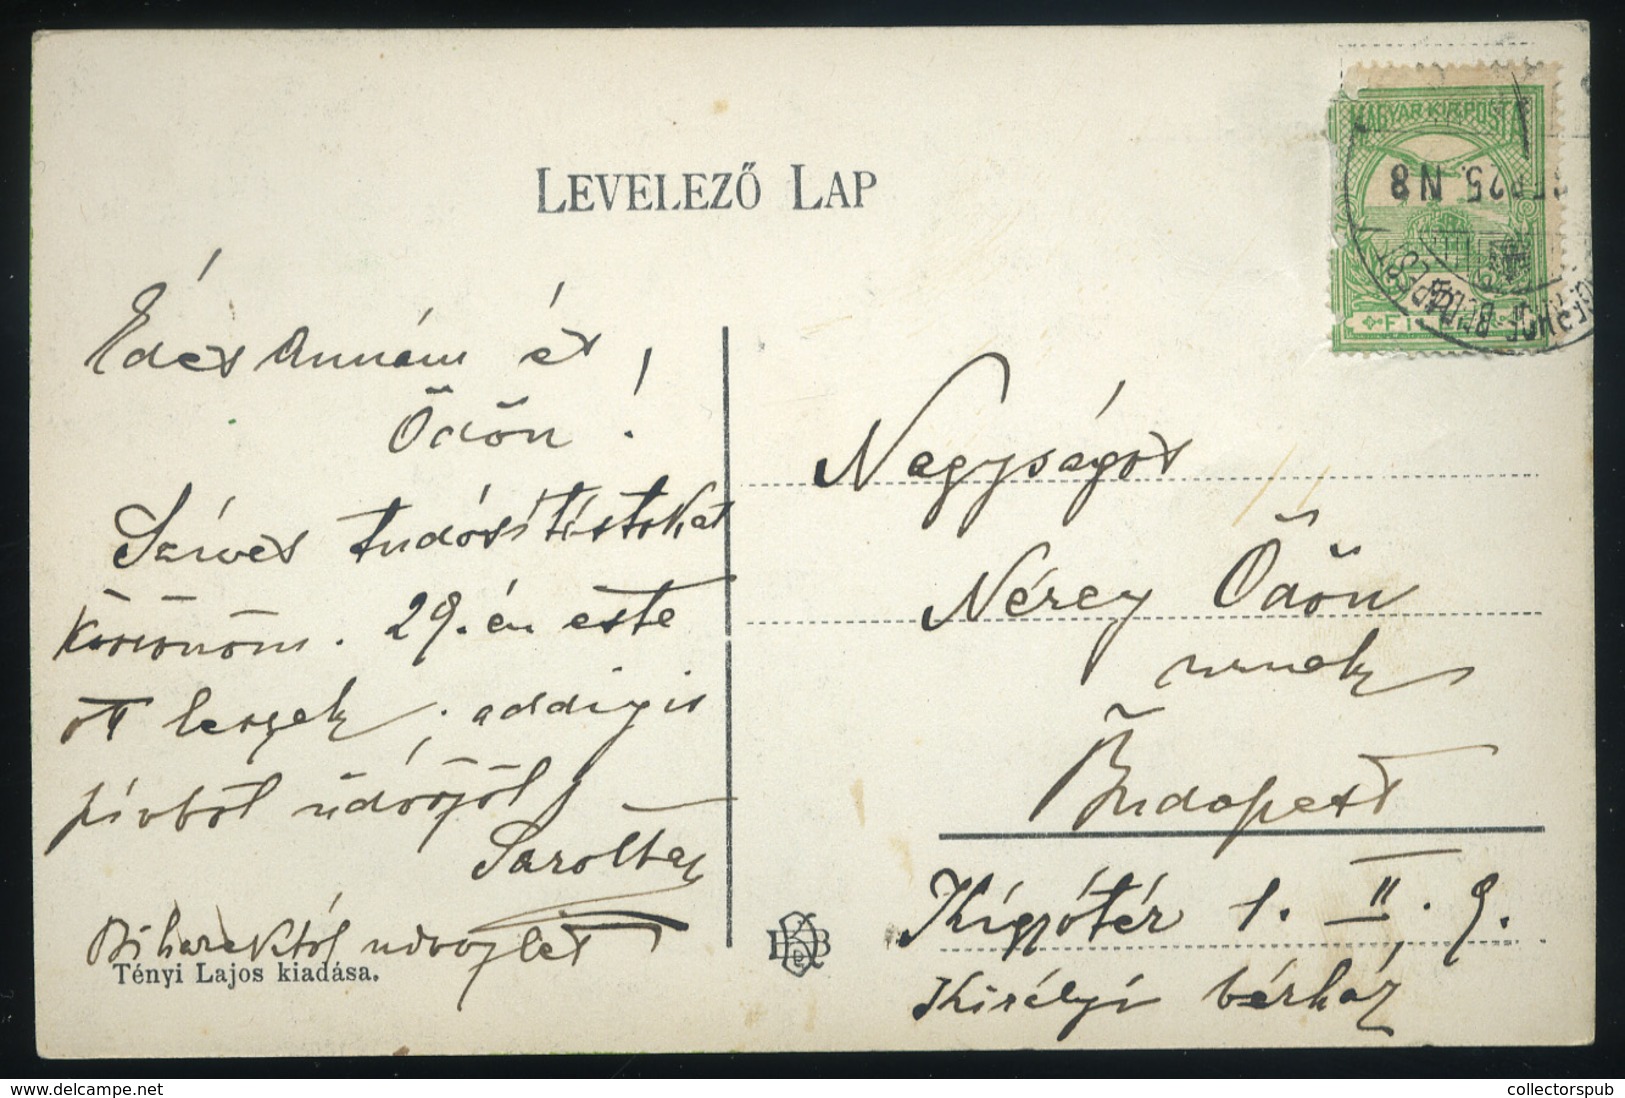 LEVELEZŐ LAP
MAGYAR KIR. POSTA
25. N8
Édes Annám és
Ödön!
Szíves tudósítástokat
köszönöm. 29.-én este
ott leszek, addig is
szívből üdvözöl
Sarolta
Biharektól üdvözlet
Tényi Lajos kiadása.
Nagyságos
Nérey Ödön
urnak
Budapest
Kígyótér 1. II. 9.
Királyi bérház
delcampe.net
collectorspub